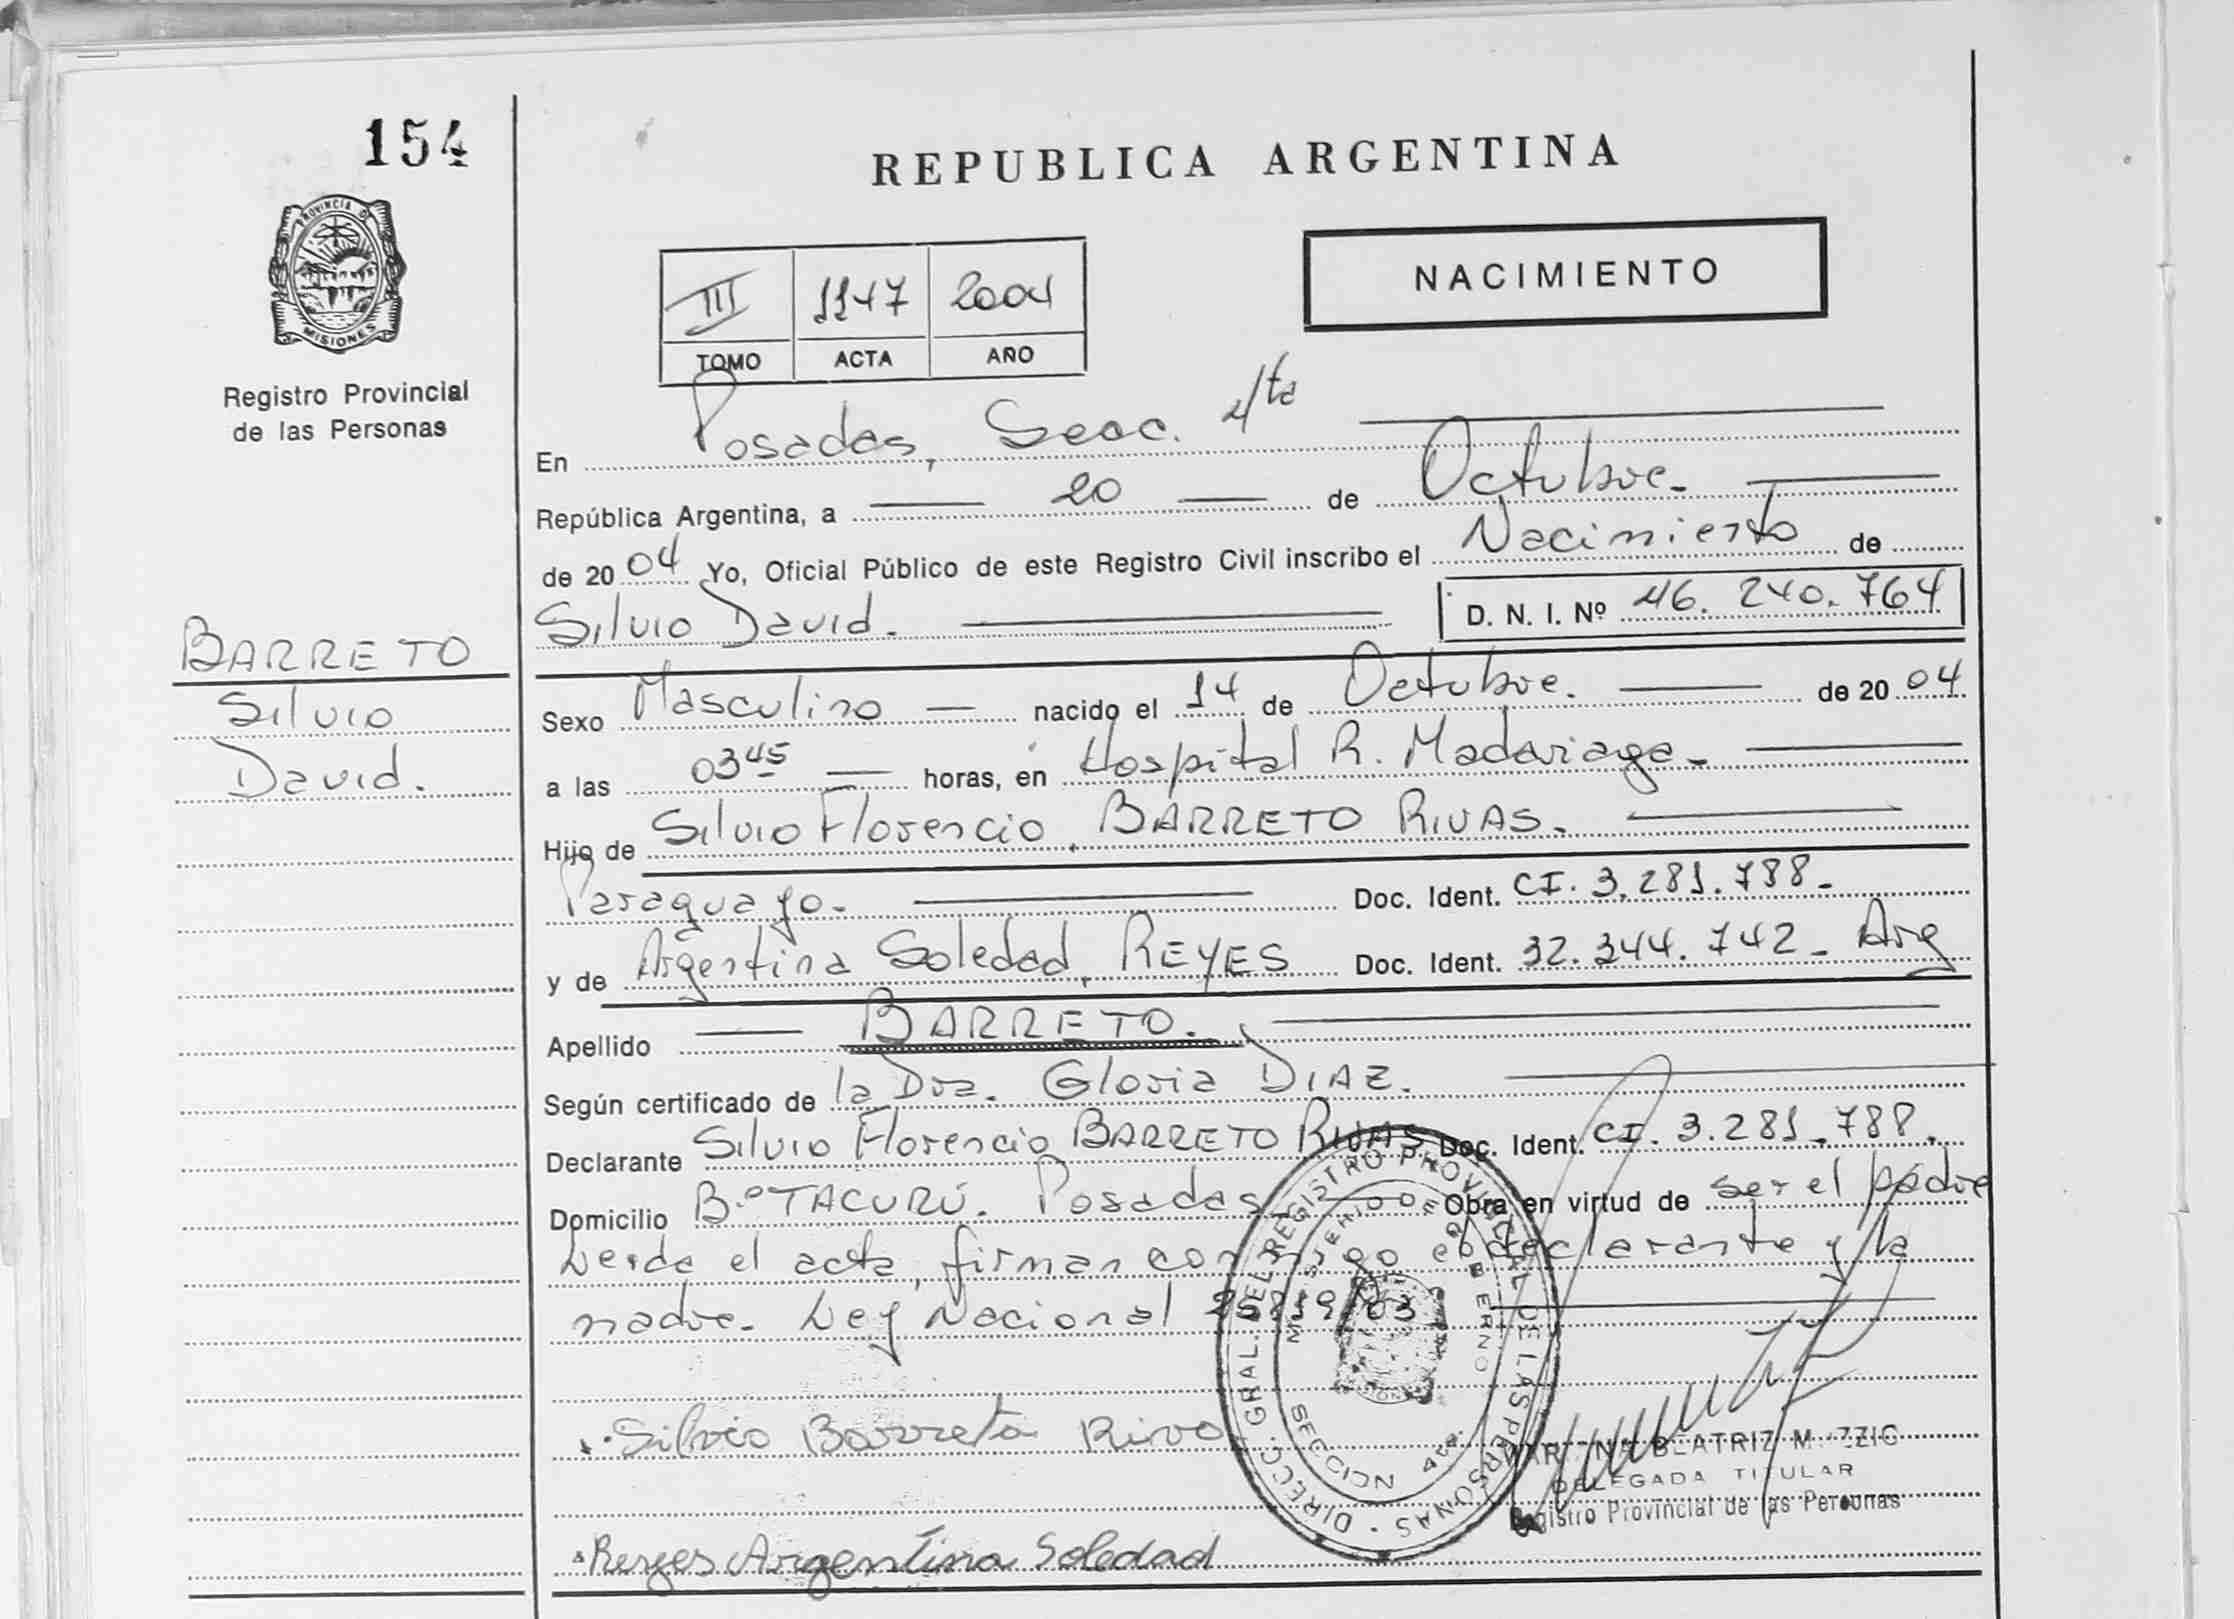 154
PROVINCIA DE
MISIONES
Registro Provincial
de las Personas
BARRETO
Silvio
David.
REPUBLICA ARGENTINA
NACIMIENTO
III 1147 2004
TOMO ACTA AÑO
En Posadas, Secc. 4ta
República Argentina, a 20 de Octubre.
de 2004 Yo, Oficial Público de este Registro Civil inscribo el Nacimiento de
Silvio David. D. N. I. Nº 46.240.764
Sexo Masculino nacido el 14 de Octubre. de 2004
a las 0345 horas, en Hospital R. Madariaga.
Hijo de Silvio Florencio, BARRETO RIVAS.
Paraguayo. Doc. Ident. CI. 3.281.788.
y de Argentina Soledad, REYES Doc. Ident. 32.344.742 Arg
Apellido BARRETO.
Según certificado de la Dra. Gloria DIAZ.
Declarante Silvio Florencio BARRETO RIVAS Doc. Ident. CI. 3.281.788.
Domicilio Bº TACURÚ. Posadas Obra en virtud de ser el padre
Leida el acta, firman conmigo el declarante y la
madre. Ley Nacional 25819/03
Silvio Barreto
Reyes Argentina Soledad
DIRECC. GRAL. DEL REGISTRO PROVINCIAL DE LAS PERSONAS
MINISTERIO DE GOBIERNO
SECCION 4ta.
BEATRIZ
DELEGADA TITULAR
Registro Provincial de las Personas